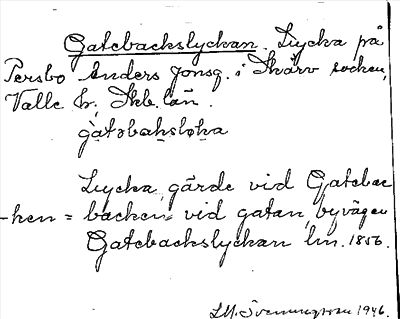 Gatebackslyckan. Lycka på
Persbo Anders Jonsg. i Skärv socken,
Valle h., Skb. län.
gatəbaksløka
Lycka, gärde vid Gatebac
-ken = backen vid gatan, byvägen
Gatebackslyckan lm. 1856.
1946.